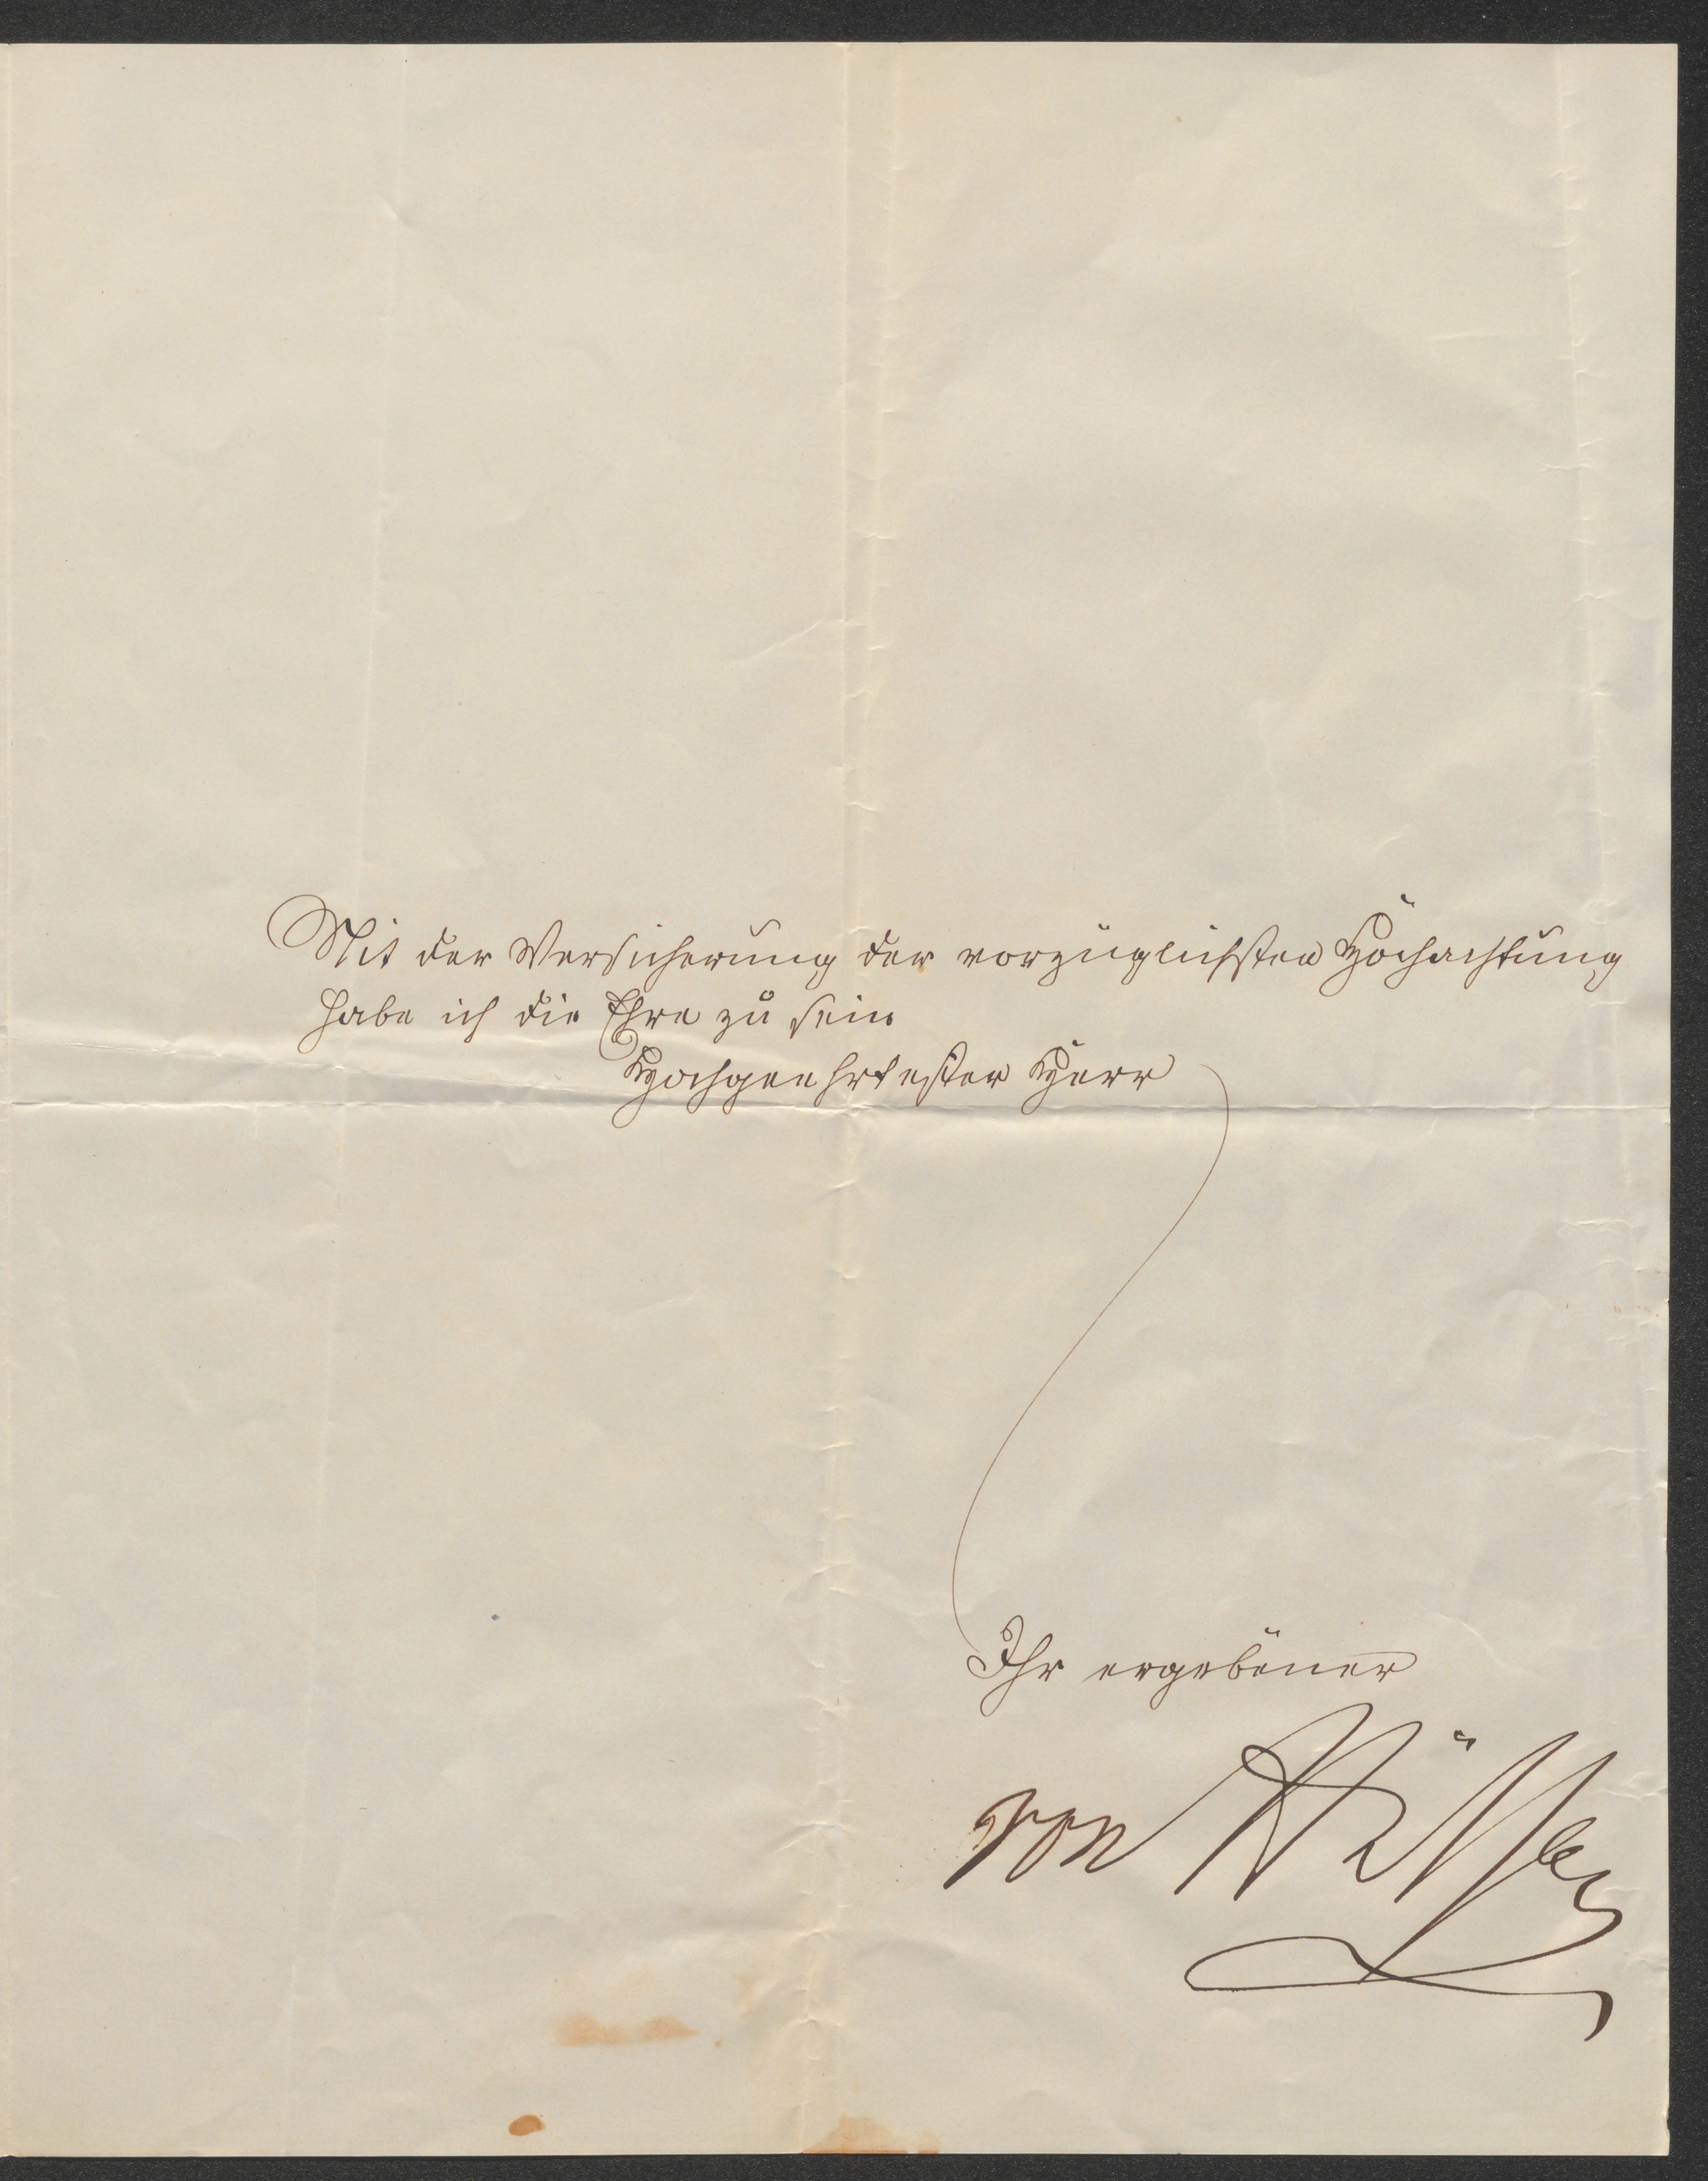 Mit der Versicherung der vorzüglichsten Hochachtung
habe ich die Ehre zu sein
Hochgeehrtester Herr
Ihr ergebener
von